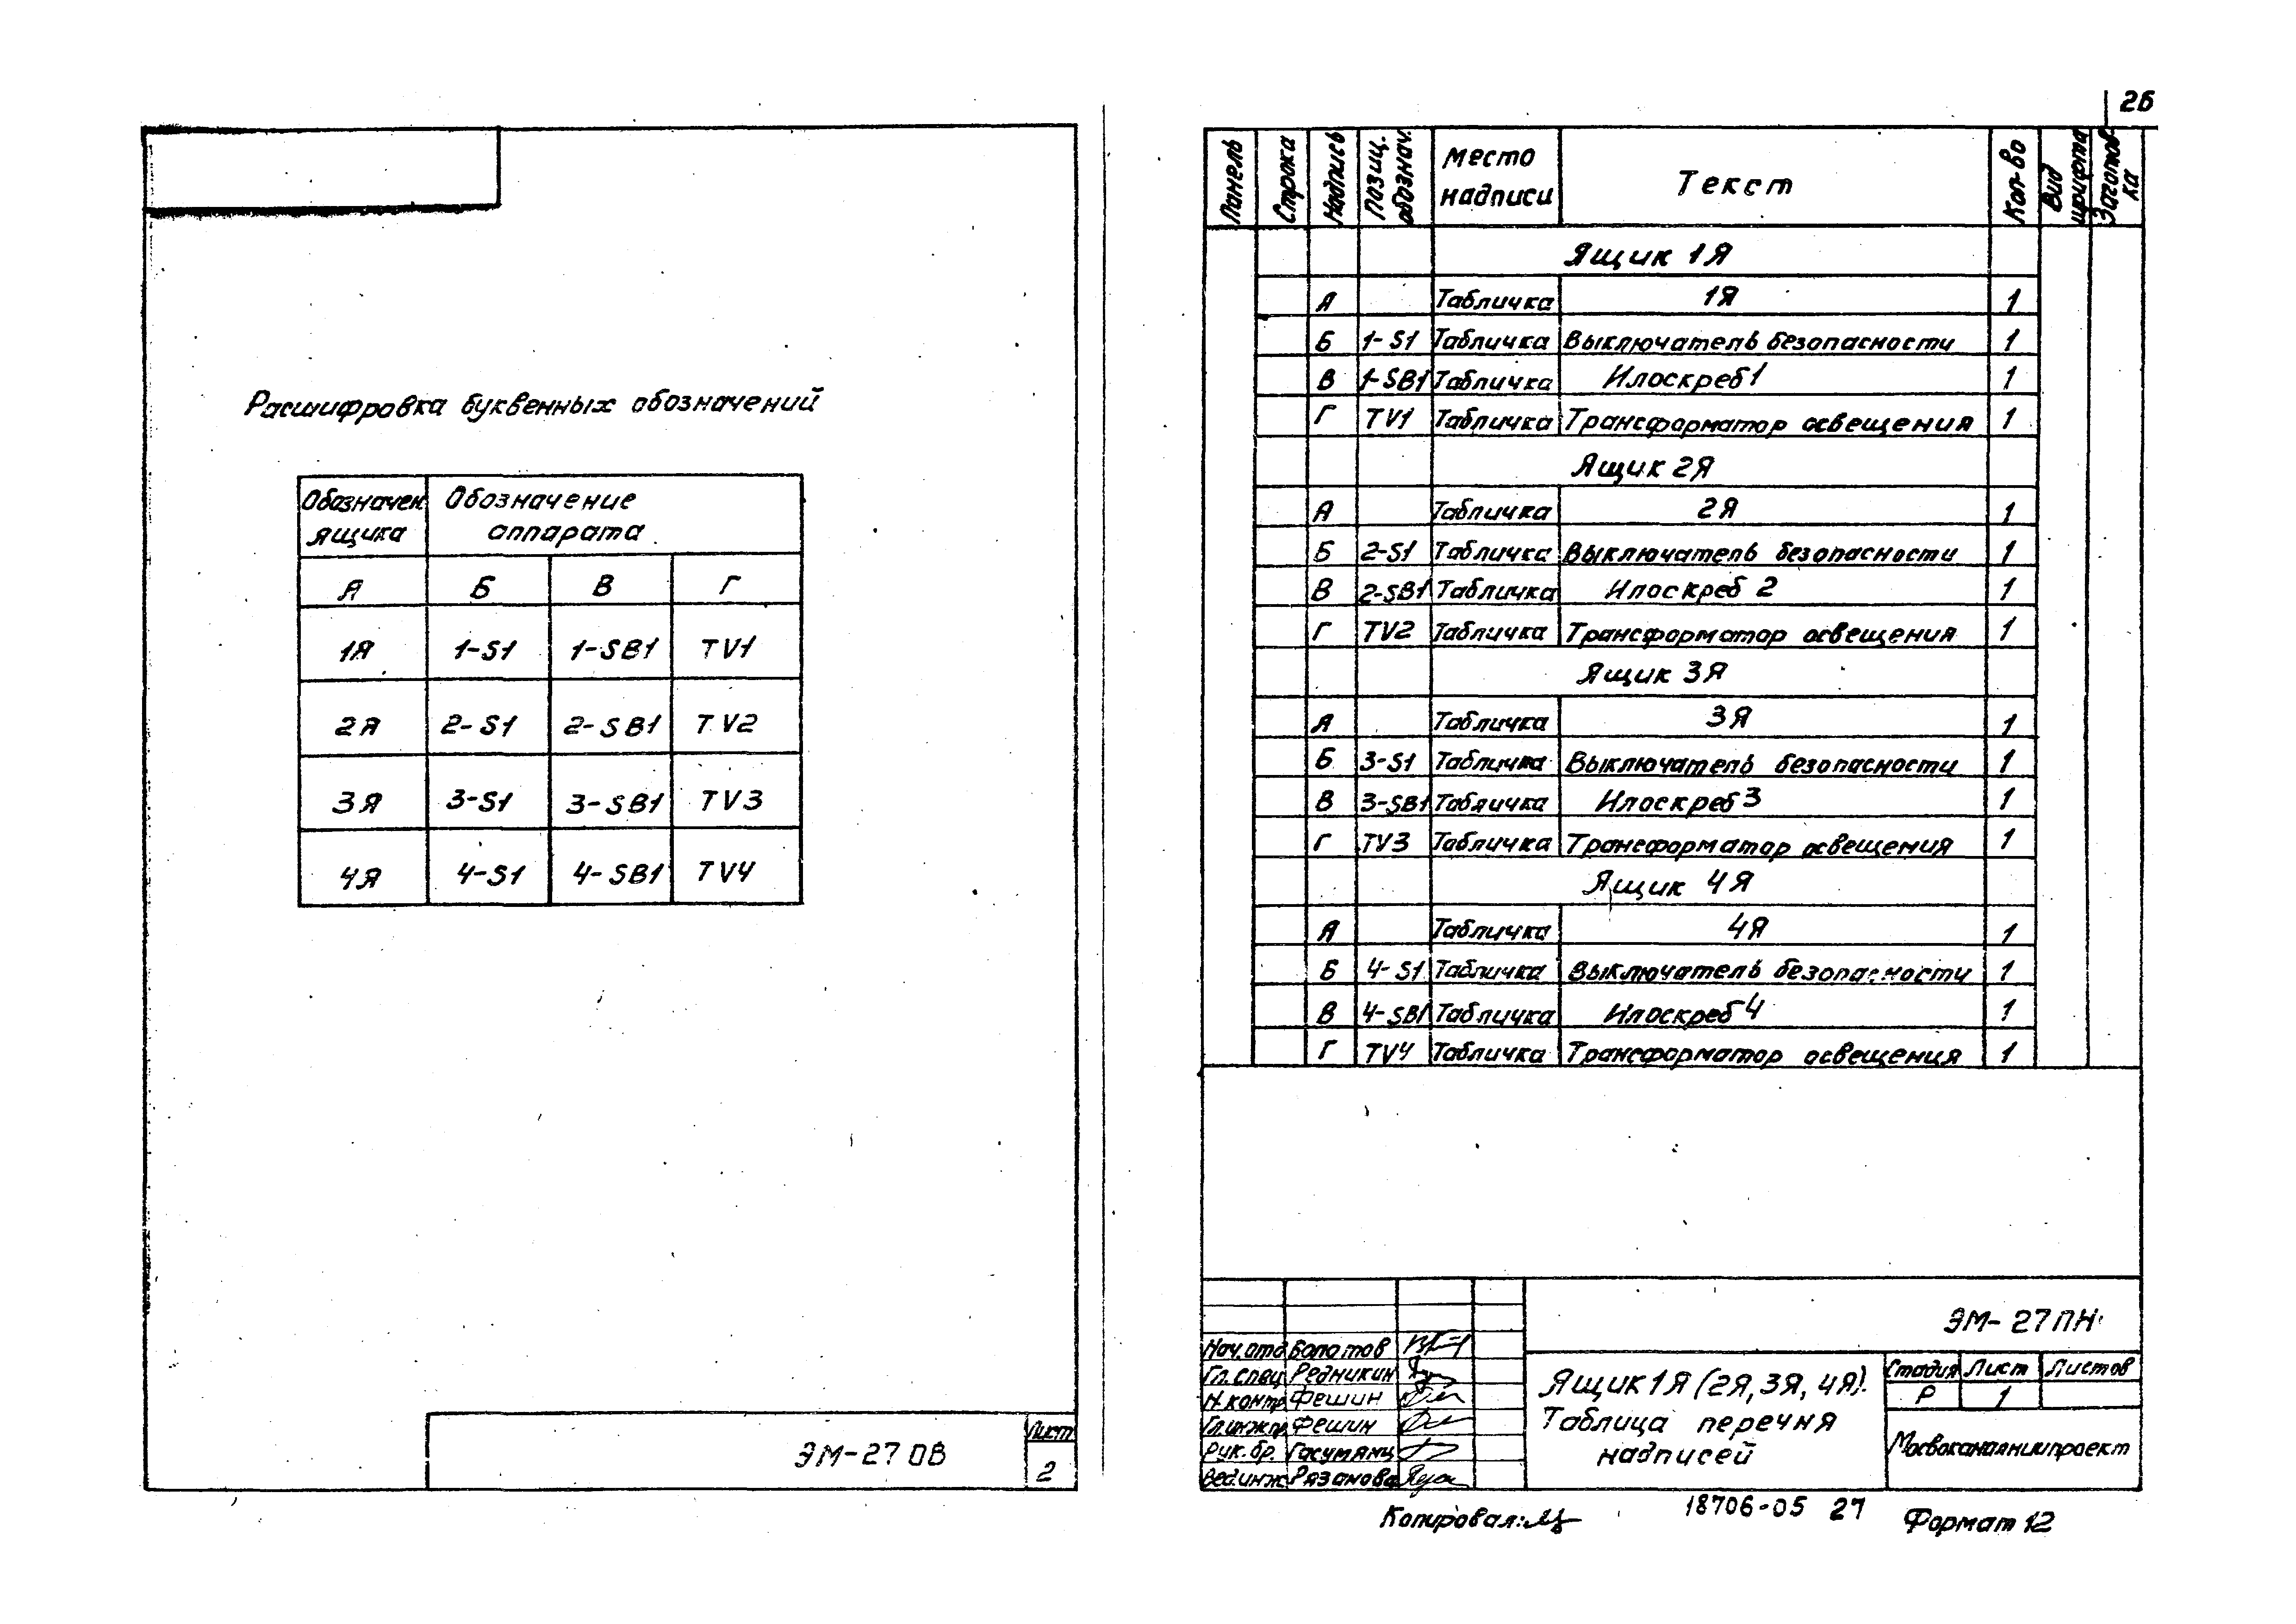 26
Расшифровка буквенных обозначений
Обозначен. ящика | Обозначение аппарата
А | Б | В | Г
1Я | 1-S1 | 1-SB1 | TV1
2Я | 2-S1 | 2-SB1 | TV2
3Я | 3-S1 | 3-SB1 | TV3
4Я | 4-S1 | 4-SB1 | TV4
ЭМ-27 ОВ
Лист
2
Панель | Строка | Надпись | Позиц. обознач. | Место надписи | Текст | Кол-во | Вид шрифта | Заготовка
Ящик 1Я
А | Табличка | 1Я | 1
Б | 1-S1 | Табличка | Выключатель безопасности | 1
В | 1-SB1 | Табличка | Илоскреб 1 | 1
Г | TV1 | Табличка | Трансформатор освещения | 1
Ящик 2Я
А | Табличка | 2Я | 1
Б | 2-S1 | Табличка | Выключатель безопасности | 1
В | 2-SB1 | Табличка | Илоскреб 2 | 1
Г | TV2 | Табличка | Трансформатор освещения | 1
Ящик 3Я
А | Табличка | 3Я | 1
Б | 3-S1 | Табличка | Выключатель безопасности | 1
В | 3-SB1 | Табличка | Илоскреб 3 | 1
Г | TV3 | Табличка | Трансформатор освещения | 1
Ящик 4Я
А | Табличка | 4Я | 1
Б | 4-S1 | Табличка | Выключатель безопасности | 1
В | 4-SB1 | Табличка | Илоскреб 4 | 1
Г | TV4 | Табличка | Трансформатор освещения | 1
ЭМ-27ПН
Нач.отд Болотов
Гл.спец Редникин
Н.контр Фешин
Гл.инж.пр. Фешин
Рук.бр. Гасумянц
Вед.инж Рязанова
Ящик 1Я (2Я, 3Я, 4Я).
Таблица перечня
надписей
Стадия | Лист | Листов
Р | 1
Мосводоканалниипроект
Копировал:
18706-05 27
Формат 12